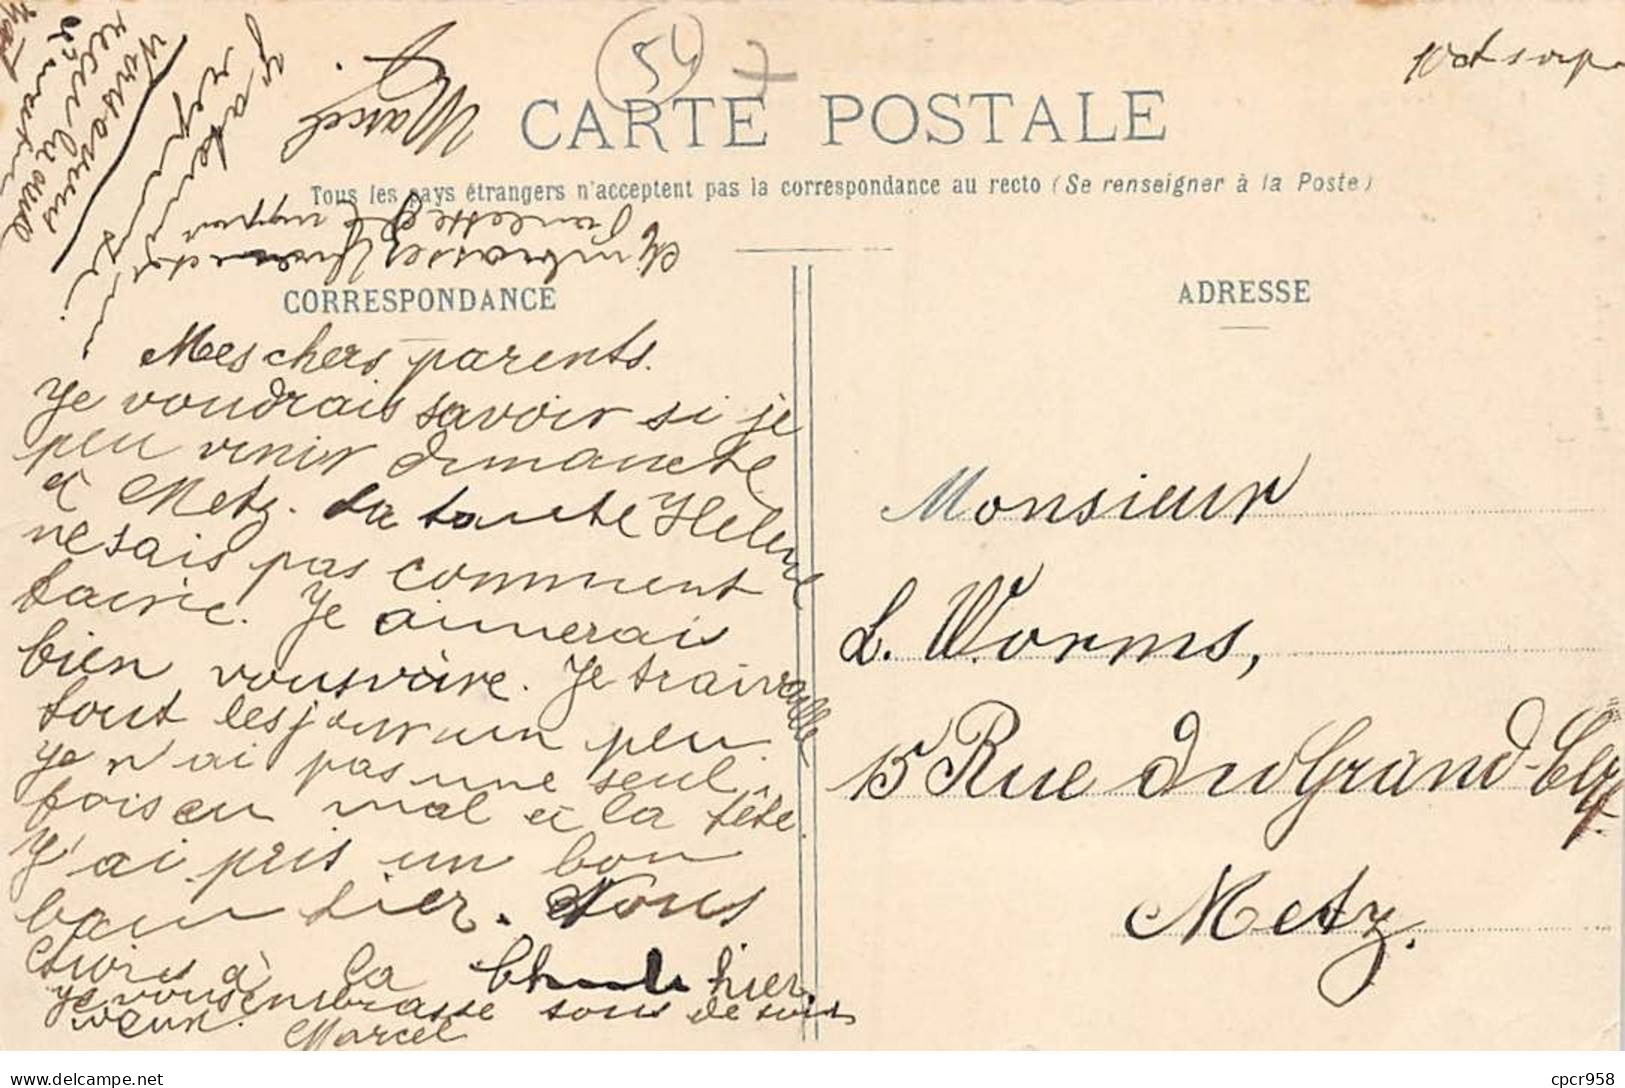 10ct
54
Marcel
J'attends
réponse.
Vous avez
reçu la
CARTE POSTALE
Tous les pays étrangers n'acceptent pas la correspondance au recto (Se renseigner à la Poste)
embrassez
CORRESPONDANCE
ADRESSE
Mes chers parents.
Je voudrais savoir si je
peu venir dimanche
à Metz. La tante Hélène
ne sais pas comment
faire. Je aimerais
bien vous voire. Je travaille
tout les jour un peu.
Je n'ai pas une seul
fois eu mal à la tête.
J'ai pris un bon
bain hier. Nous
à la hier.
Je vous embrasse tous de
Marcel
Monsieur
L. Worms,
15 Rue du Grand-Cerf
Metz.
delcampe.net
cpcr958